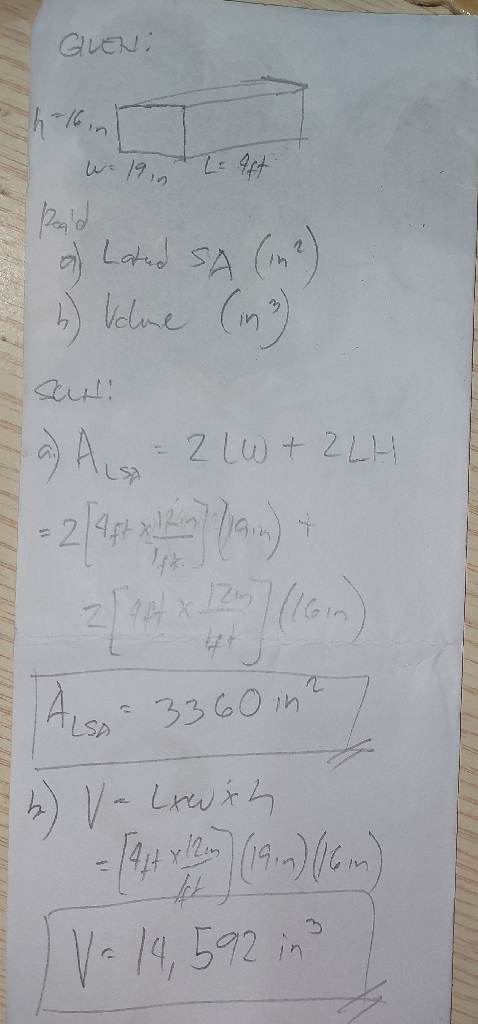 GIVEN:
h=16 in
W= 19 in L= 4ft
Req'd
a) Lateral SA (in²)
b) Volume (in³)
Sol'n:
a) A LSA = 2LW + 2LH
= 2[4ft x 12in/1ft](19in) +
2[4ft x 12in/1ft](16in)
A LSA = 3360 in²
b) V = LxWxh
= [4ft x 12in/1ft](19in)(16in)
V= 14,592 in³